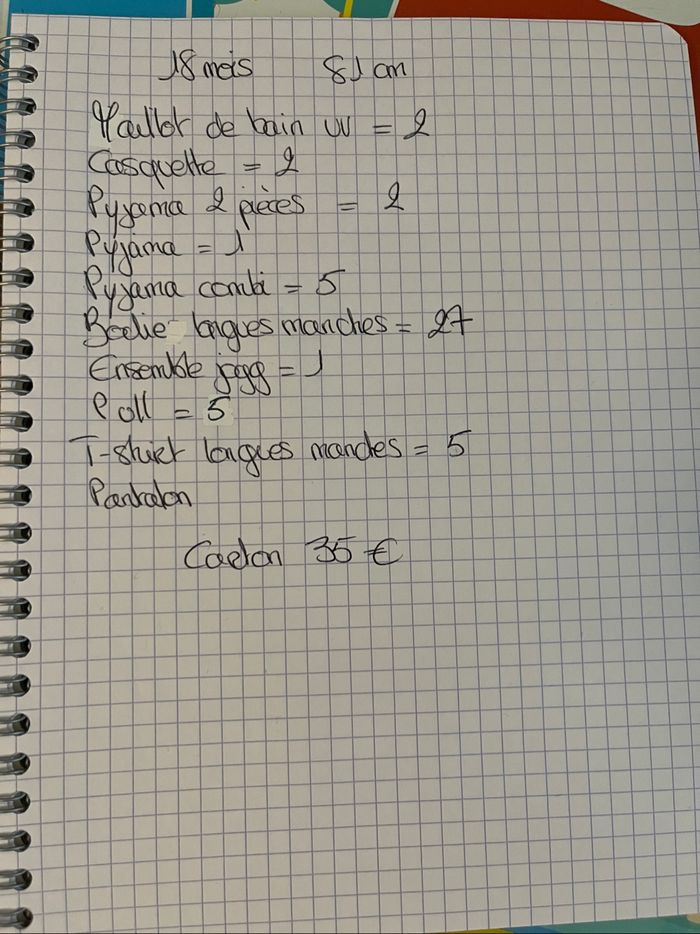 18 mois 81 cm
Maillot de bain UV = 2
Casquette = 2
Pyjama 2 pièces = 2
Pyjama = 1
Pyjama combi = 5
Bodie longues manches = 27
Ensemble jogg = 1
Pull = 5
T-shirt longues manches = 5
Pantalon
Carton 35 €